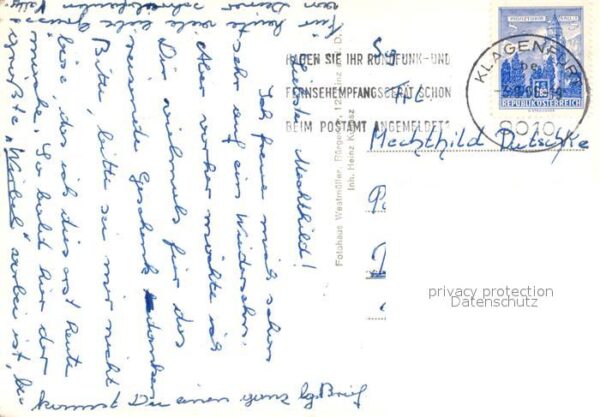 Liebste Mechthild!
Ich freue mich schon
sehr auf ein Wiedersehn.
Aber vorher möchte ich
Dir vielmals für das
reizende Geschenk danken
Bitte, bitte sei mir nicht
böse, daß ich dies erst heute
mache. So bald hier der
größte "Wirbel" vorbei ist, be-
kommst Du einen
Brief
Für heute viele liebe Grüsse
von Deiner
HABEN SIE IHR RUNDFUNK- UND
FERNSEHEMPFANGSGERÄT SCHON
BEIM POSTAMT ANGEMELDET?
KLAGENFURT
REPUBLIK ÖSTERREICH
Frl.
Mechthild
Fotohaus Westmüller, Bürgerstr. 12, Linz a. D.
Inh. Heinz
privacy protection
Datenschutz